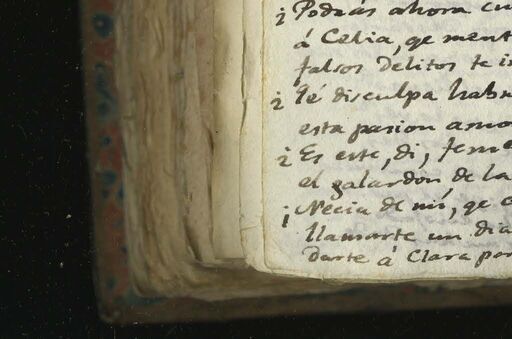 ¿Podrás ahora cu
á Celia, qe ment
falsos delitos te i
¿Qé disculpa hab
esta pasion amo
¿Es este, di, feme
el galardon de la
¡Necia de mí, qe c
llamarte un dia
Darte á Clara por